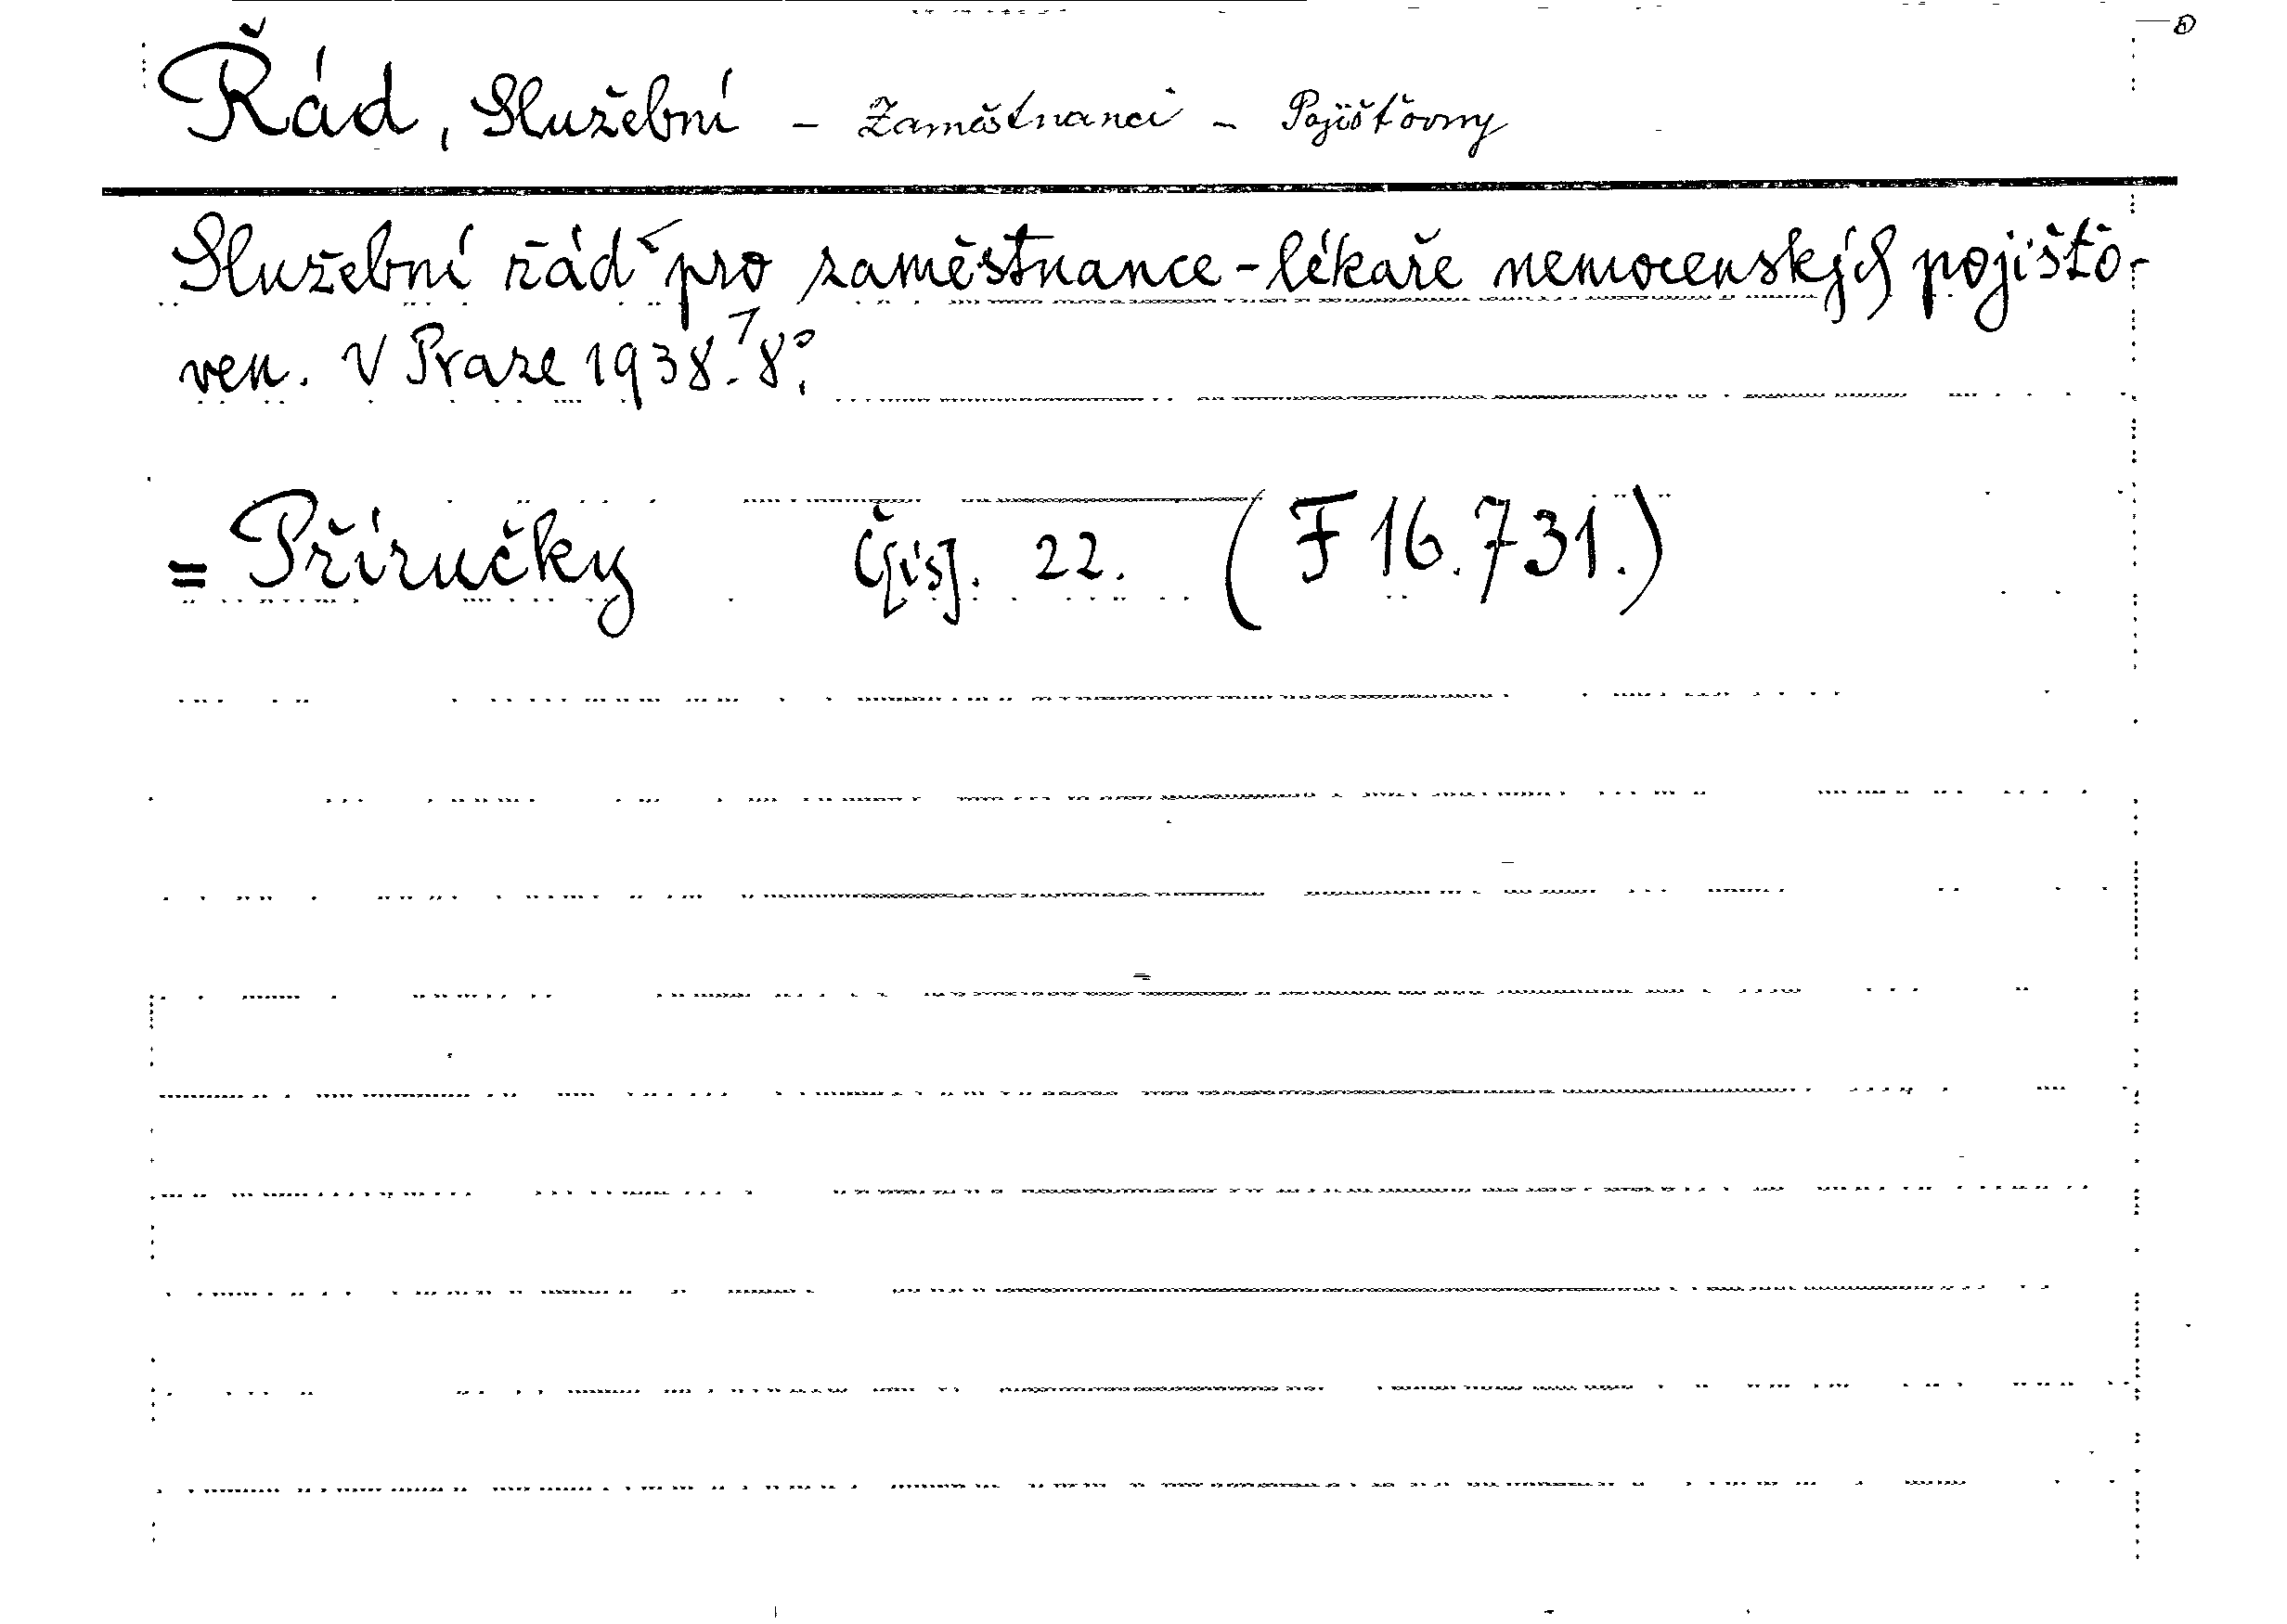 Řád, Služební – Zaměstnanci – Pojišťovny
Služební řád pro zaměstnance-lékaře nemocenských pojišťo-
ven. V Praze 1938. 8°.
= Příručky Č[ís]. 22. (F 16.731.)